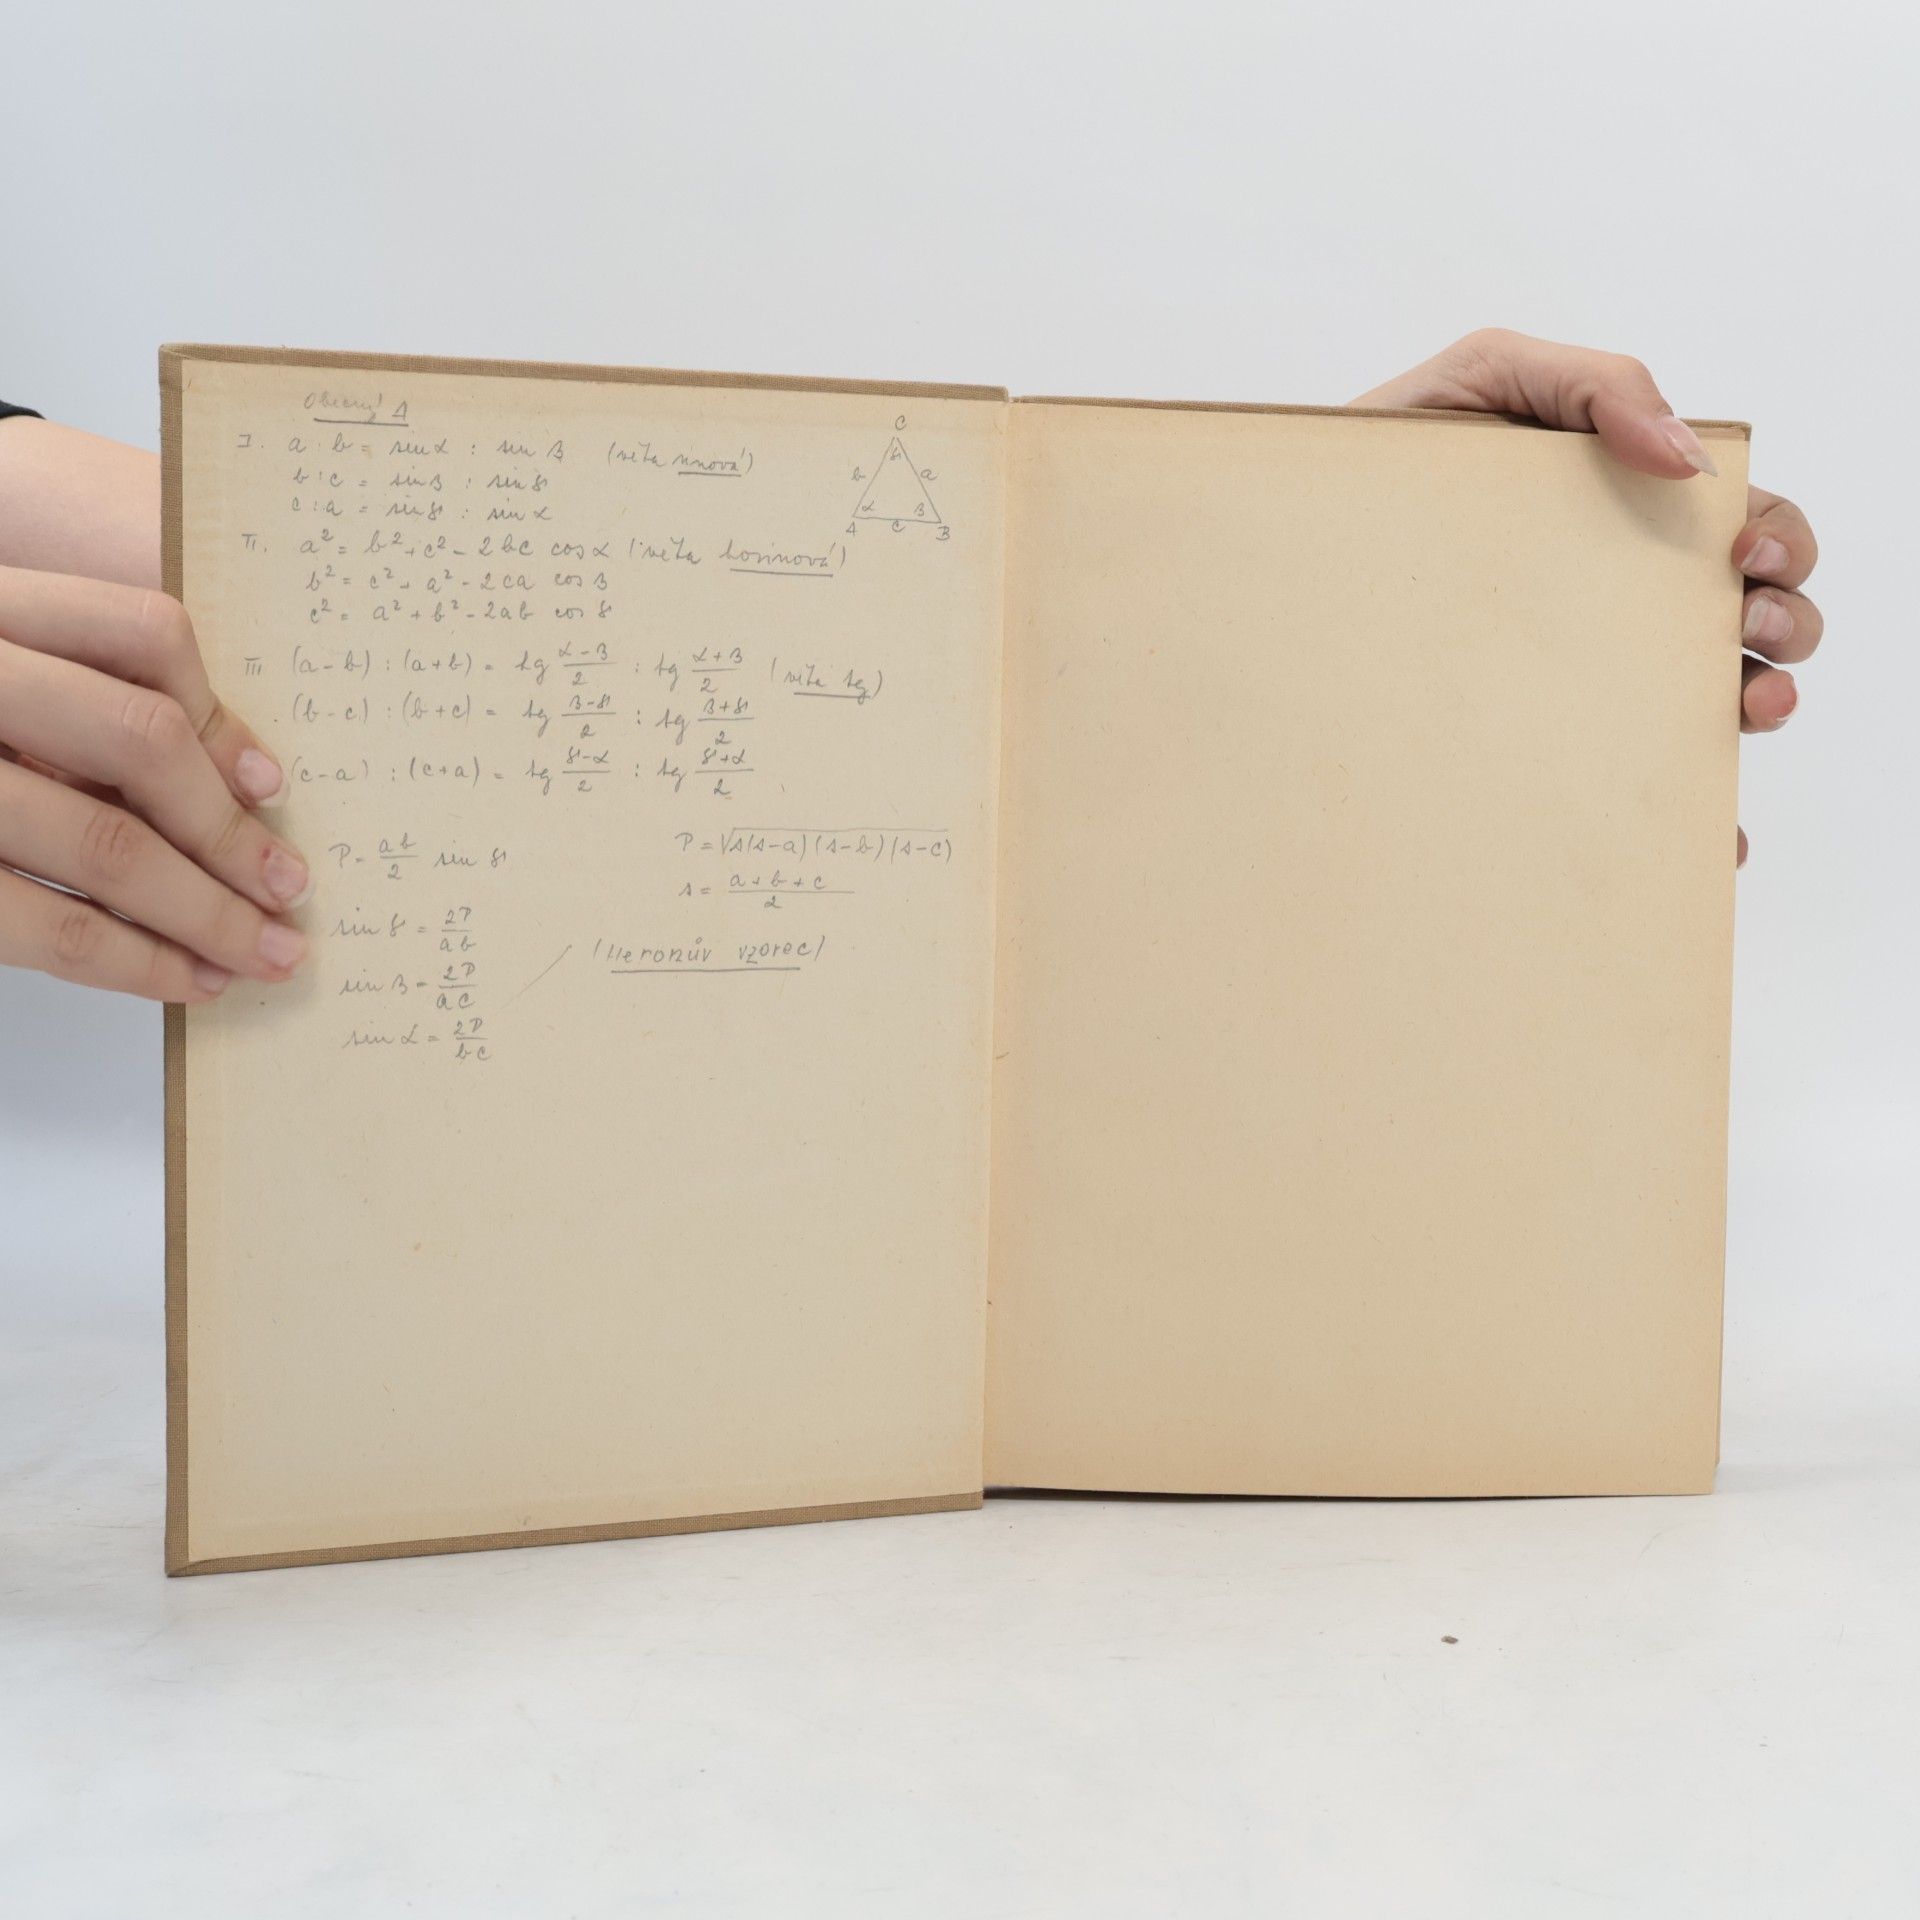 Obecný Δ
I. a : b = sin α : sin β (věta sinová)
b : c = sin β : sin γ
c : a = sin γ : sin α
II. a² = b² + c² - 2bc cos α (věta kosinová)
b² = c² + a² - 2ca cos β
c² = a² + b² - 2ab cos γ
III (a-b) : (a+b) = tg (α-β)/2 : tg (α+β)/2 (věta tg)
(b-c) : (b+c) = tg (β-γ)/2 : tg (β+γ)/2
(c-a) : (c+a) = tg (γ-α)/2 : tg (γ+α)/2
C
γ
b a
α β
A c B
P = ab/2 sin γ
sin γ = 2P/ab
sin β = 2P/ac
sin α = 2P/bc
P = √s(s-a)(s-b)(s-c)
s = a+b+c/2
(Heronův vzorec)